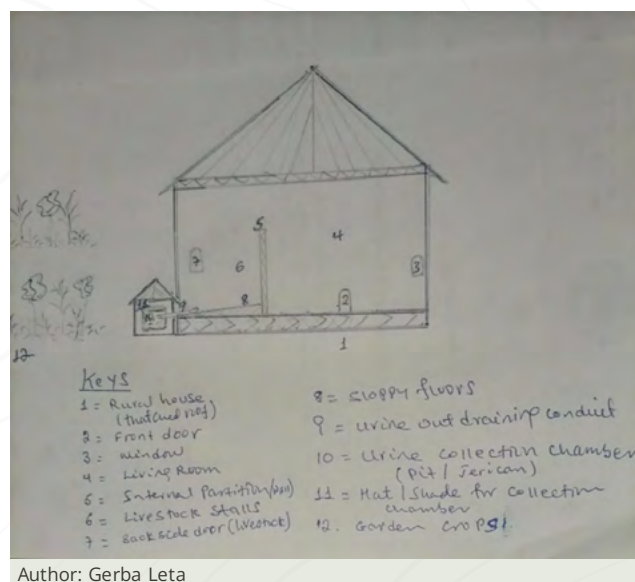 5
4
7
6
3
8
9
2
11
10
1
12
Keys
1 = Rural house
(thatched roof)
2 = Front door
3 = window
4 = Living Room
6 = Internal Partition
6 = Livestock Stalls
7 = Back side door (livestock)
8 = Sloppy floors
9 = Urine out draining conduit
10 = Urine collection chamber
(pit / Jerican)
11 = Hat / Shade for collection
chamber
12. Garden crops
Author: Gerba Leta